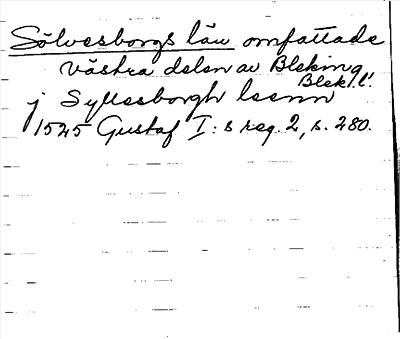 Sölvesborgs län omfattade
västra delen av Bleking
Blek. l.
j Syllesborgh leenn
1525 Gustaf I:s reg. 2, s. 280.